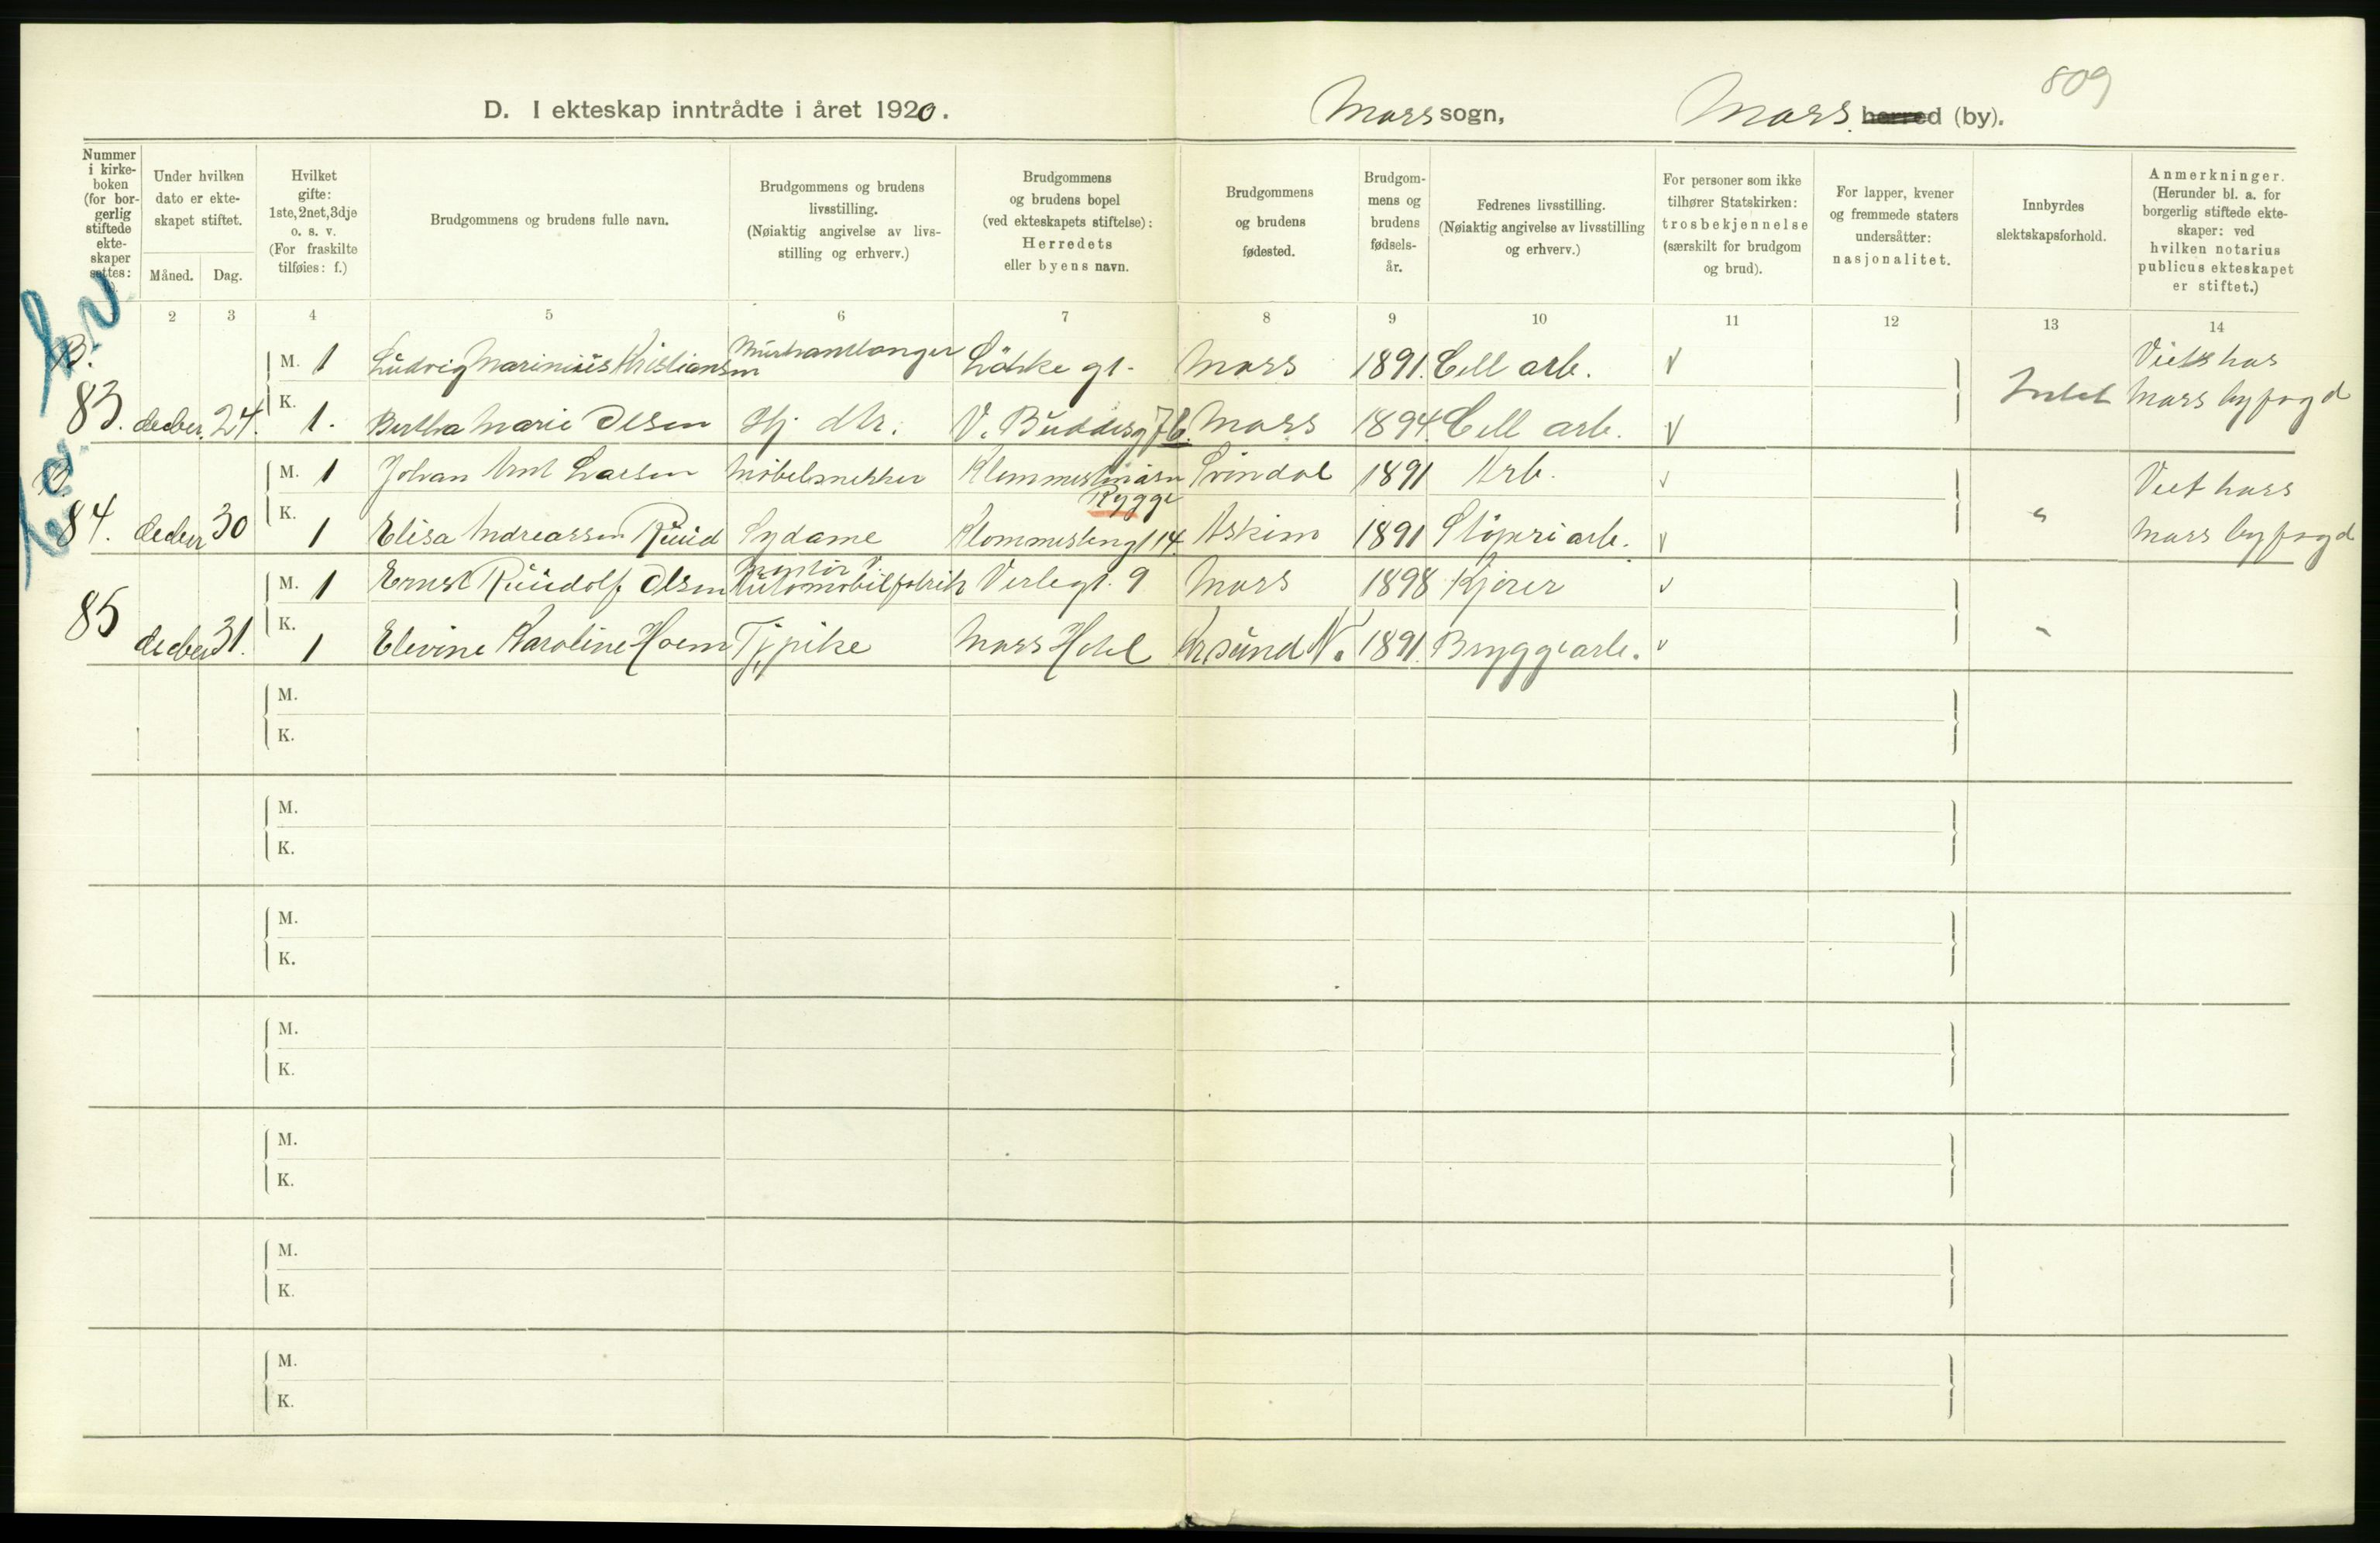 809
D. I ekteskap inntrådte i året 1920.
Moss sogn,
Moss herred (by).
Nummer i kirkeboken (for borgerlig stiftede ekteskaper settes:
Under hvilken dato er ekteskapet stiftet.
Måned. Dag.
Hvilket gifte: 1ste, 2net, 3dje o. s. v. (For fraskilte tilføies: f.)
Brudgommens og brudens fulle navn.
Brudgommens og brudens livsstilling. (Nøiaktig angivelse av livsstilling og erhverv.)
Brudgommens og brudens bopel (ved ekteskapets stiftelse): Herredets eller byens navn.
Brudgommens og brudens fødested.
Brudgommens og brudens fødselsår.
Fedrenes livsstilling. (Nøiaktig angivelse av livsstilling og erhverv.)
For personer som ikke tilhører Statskirken: trosbekjennelse (særskilt for brudgom og brud).
For lapper, kvener og fremmede staters undersåtter: nasjonalitet.
Innbyrdes slektskapsforhold.
Anmerkninger. (Herunder bl. a. for borgerlig stiftede ekteskaper: ved hvilken notarius publicus ekteskapet er stiftet.)
2 3 4 5 6 7 8 9 10 11 12 13 14
B.
M. 1 Ludvig Marinius Kristiansen Murhandlanger Løkkegt. Moss 1891. Cell arb. Viet hos
83. decber. 24. K. 1. Bertha Marie Olsen Hj dtr. V. Buddesg 7b. Moss 1894. Cell arb. Intet Moss byfogd
B.
M. 1 Johan Arnt Larsen Møbelsnekker Svindal 1891 Arb. Viet hos
Rygge
84. decber 30 K. 1 Elisa Andreassen Ruud Sydame 14 Askim 1891 Støperiarb. " Moss byfogd
M. 1 Ernst Ruudolf Olsen Montør v. Automobilfabrik Verlegt. 9 Moss 1898 Kjører
85 decber 31. K. 1 Elevine Karoline Hoem Tj.pike Moss Hotel Krsund N. 1891. Bryggearb. "
M.
K.
M.
K.
M.
K.
M.
K.
M.
K.
M.
K.
M.
K.